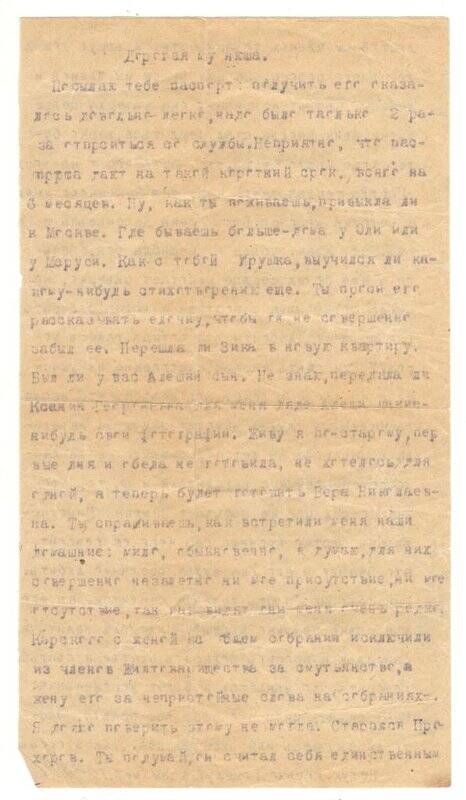 Дорогая Мумкша.
Посылаю тебе паспорт: получить его оказа-
лось довольно легко, надо было только 2 ра-
за отпроситься со службы. Неприятно, что пас-
порта дают на такой короткий срок, всего на
6 месяцев. Ну, как ты поживаешь, привыкла ли
к Москве. Где бываешь больше-дома у Оли или
у Маруси. Как с тобой Ирушка, выучился ли ка-
кому-нибудь стихотворению еще. Ты порой его
рассказывать елочку, чтобы он не совершенно
забыл ее. Перешла ли Зика в новую квартиру.
Был ли у вас Алешин сын. Не знаю, передала ли
Ксения Георгиевна для меня дяде Алеши какие-
нибудь свои фотографии. Живу я по-старому, пер
вые дни и обеда не готовила, не хотелось для
одной, а теперь будет готовить Вера Николаев-
на. Ты спрашиваешь, как встретили меня наши
домашние: мило, обыкновенно, я думаю, для них
совершенно незаметно ни мое присутствие, ни мое
отсутствие, так как видят они меня очень редко.
Карского с женой на общем собрании исключили
из членов Жилтоварищества за смутьянство, а
жену его за непристойные слова на собраниях-.
Я долго поверить этому не могла. Старался Про-
хоров. Ты подумай, он считал себя единственным